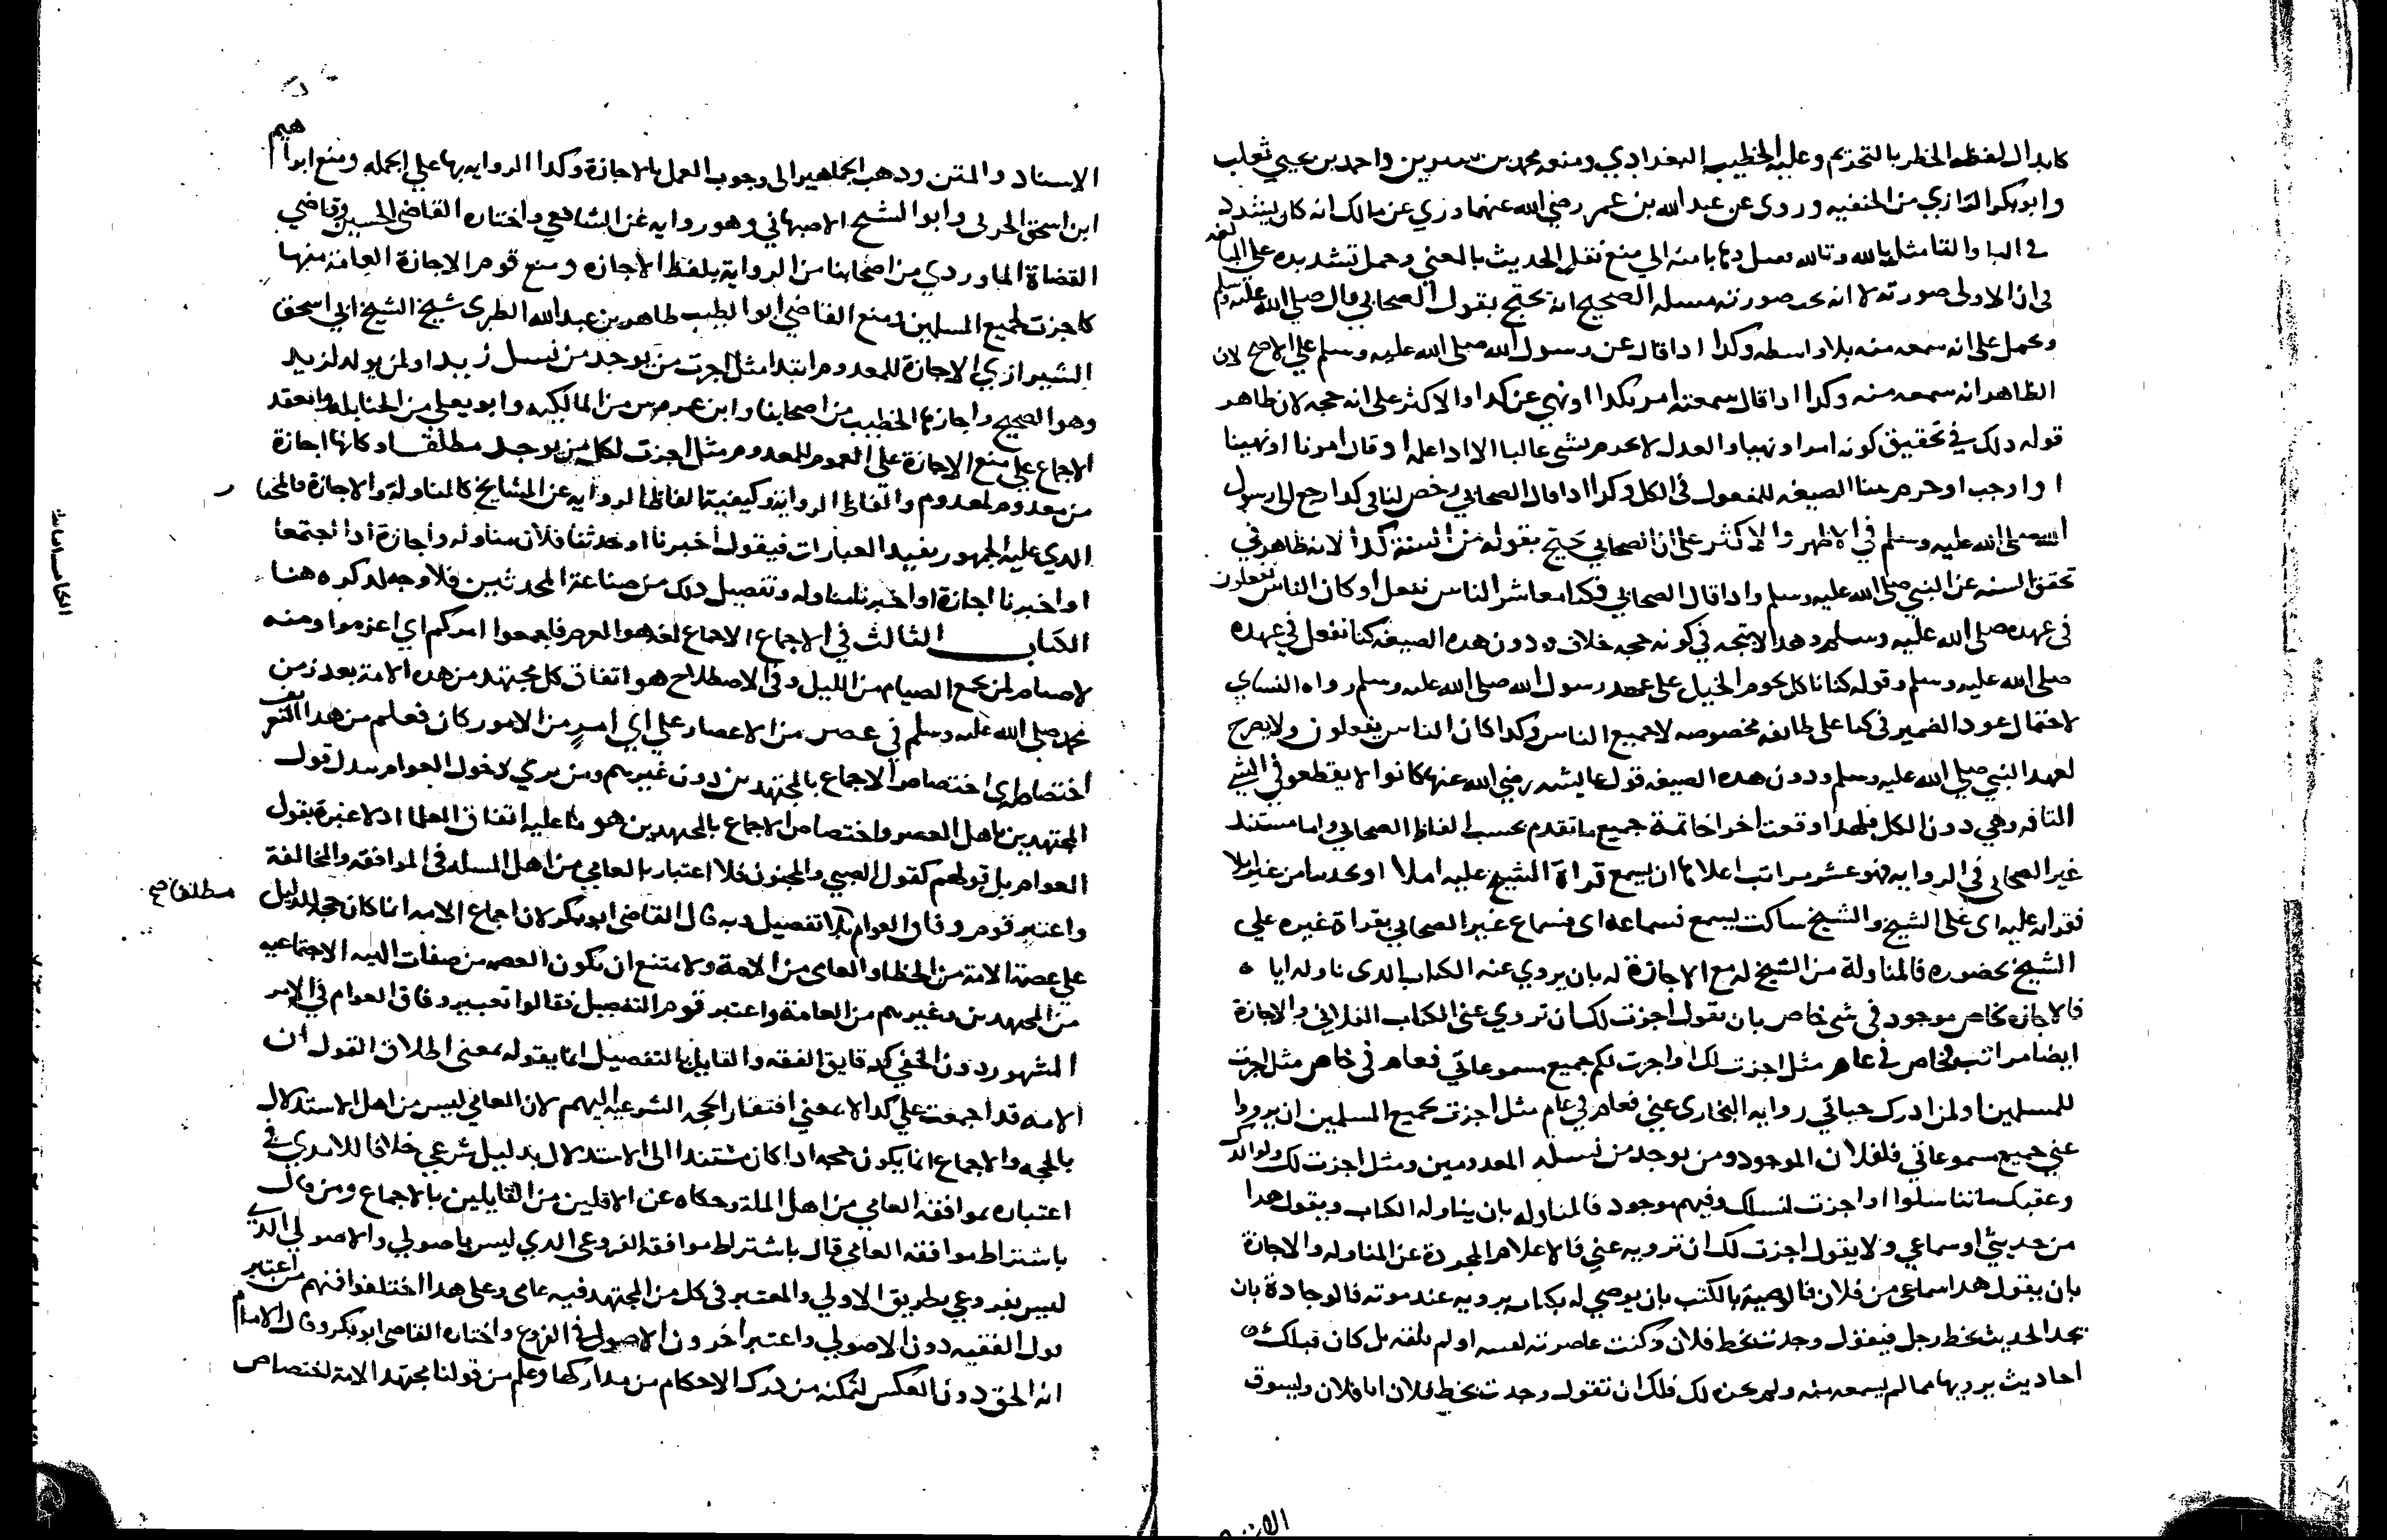 كابدال لفظه الحظر بالتحريم وعليه الخطيب البغدادي ومنعه محمد بن سيرين واحمد بن يحيي ثعلب
وابو بكر الرازي من الحنفيه وروي عن عبد الله بن عمر رضي الله عنهما وروي عن مالك انه كان يشدد
في البا والتا مثل بالله وتالله الي منع نقل الحديث بالمعني وحمل تشديده علي المبالغه
في ان الاولي صورته لا انه صورته مسله الصحيح انه يحتج بقول الصحابي قال صلي الله عليه وسلم
ويحمل علي انه سمعه منه بلا واسطه وكدا ادا قال عن رسول الله صلي الله عليه وسلم علي الاصح لان
الظاهر انه سمعه منه وكدا ادا قال سمعته امر بكدا او نهي عن كدا والاكثر علي انه حجه لان ظاهر
قوله دلك في تحقيق كونه امرا ونهيا والعدل لا بشي غالبا الا ادا علمه او قال امرنا او نهينا
او اوجب او حرم ببنا الصيغه للمفعول في الكل وكدا ادا قال الصحابي رخص لنا في كدا رجع الي رسول
الله صلي الله عليه وسلم في الاظهر والاكثر علي ان الصحابي يحتج بقوله من السنة كدا لانه ظاهر في
تحقق السنه عن النبي صلي الله عليه وسلم وادا قال الصحابي فكنا معاشر الناس نفعل او كان الناس يفعلون
في عهده صلي الله عليه وسلم وهدا لا يتجه في كونه حجه خلاف ودون هده الصيغه كنا نفعل في عهده
صلي الله عليه وسلم وقوله كنا ناكل لحوم الخيل علي عهد رسول الله صلي الله عليه وسلم رواه النساي
لاحتمال عود الضمير في كنا علي طايفه مخصوصه لا جميع الناس وكدا كان الناس يفعلون ولا يصرح
لعهد النبي صلي الله عليه وسلم ودون هده الصيغه قول عايشه رضي الله عنها كانوا لا يقطعو في الشي
التافه وهي دون الكل فلهدا وقعت اخرا خاتمة جميع ما تقدم بحسب الفاظ الصحابي واما مستند
غير الصحابي في الروايه فهو عشر مراتب اعلاها ان يسمع قراة الشيخ عليه املا او تحديثا من غير املا
فقراته عليه اى علي الشيخ والشيخ ساكت يسمع فسماعه اى فسماع غير الصحابي بقراة غيره علي
الشيخ بحضوره فالمناولة من الشيخ له مع الاجازة له بان يروي عنه الكتاب الدى ناوله اياه
فالاجازه لخاص موجود في شي خاص بان يقول اجزت لك ان تروي عني الكتاب الفلاني والاجازة
ايضا مراتب فخاص في عام مثل اجزت لك او اجزت لكم جميع مسموعاتي فعام في خاص مثل اجزت
للمسلمين او لمن ادرك حياتي رواية البخارى عني فعام في عام مثل اجزت لجميع المسلمين ان يرووا
عني جميع مسموعاتي فلفلان الموجود ومن يوجد من نسله المعدومين ومثل اجزت لك ولولدك
وعقبك ما تناسلوا او اجزت لنسلك وفيهم موجود فالمناوله بان يناوله الكتاب ويقول هدا
من حديثي او سماعي ولا يقول اجزت لك ان ترويه عني فالاعلام المجردة عن المناوله والاجازة
بان يقول هدا سماعي من فلان فالوصية بالكتب بان يوصي له بكتاب يرويه عند موته فالوجادة بان
تجد الحديث بخط رجل فيقول وجدت بخط فلان وكنت عاصرته لقيته او لم تلقه بل كان قبلك
احاديث يرويها مما لم يسمعه منه ولم يجزه لك فلك ان تقول وجدت بخط فلان انا فلان ويسوق
الاسناد والمتن ودهب الجماهير الي وجوب العمل بالاجازة وكدا الروايه بها علي الجمله ومنع ابراهيم
ابن اسحق الحربي وابو الشيخ الاصبهاني وهو روايه عن الشافعي واختاره القاضي الحسين وقاضي
القضاة الماوردي من اصحابنا من الرواية بلفظ الاجازه ومنع قوم الاجازة العامة منها
كاجزت لجميع المسلمين ومنع القاضي ابو الطيب طاهر بن عبد الله الطبري شيخ الشيخ ابي اسحق
الشيرازي الاجازة للمعدوم ابتدا مثل اجزت من يوجد من نسل زيد او لمن يولد لزيد
وهو الصحيح واجازها الخطيب من اصحابنا وابن عمروس من المالكيه وابو يعلي من الحنابله وانعقد
الاجماع علي منع الاجازة علي العموم للمعدوم مثل اجزت لكل من يوجد مطلقا وكانها اجازة
من معدوم لمعدوم والفاظ الرواية وكيفية الفاظ الروايه عن المشايخ كالمناولة والاجازة فالمختار
الدي عليه الجمهور بقيد العبارات فيقول اخبرنا او حدثنا فلان مناوله واجازة ادا اجتمعا
او اخبرنا اجازة او اخبرنا مناوله وتفصيل دلك من صناعة المحدثين فلا وجه لدكره هنا
الكتاب الثالث في الاجماع الاجماع لغه هو العزم فاجمعوا امركم اي اعزموا ومنه
لا صيام لمن لم يجمع الصيام من الليل وفي الاصطلاح هو اتفاق كل مجتهد من هده الامة بعد زمن
محمد صلي الله عليه وسلم في عصر من الاعصار علي اي امر من الامور كان فعلم من هدا التعريف
اختصاص اي اختصاص الاجماع بالمجتهدين دون غيرهم ومن يري دخول العوام يبدل قول
المجتهدين باهل العصر واختصاص الاجماع بالمجتهدين هو ما عليه اتفاق العلما اد لا عبرة بقول
العوام بل قولهم كقول الصبي والمجنون فلا اعتبار بالعامي من اهل المسله في الموافقه والمخالفة
واعتبر قوم وفاق العوام بلا تفصيل وبه قال القاضي ابو بكر لان اجماع الامه انما كان حجه لدليل
مطلقا صح
علي عصمة الامة من الخطا والعامي من الامة ولا يمتنع ان يكون العصمه من صفات الهيه الاجتماعيه
من المجتهدين وغيرهم من العامة واعتبر قوم التفصيل فقالوا تعتبر وفاق العوام في الامر
المشهور دون الخفي كدقايق الفقه والقايل بالتفصيل انما يقوله بمعني اطلاق القول ان
الامه قد اجمعت علي كدا لا بمعني افتقار الحجه الشرعيه اليهم لان العامي ليس من اهل الاستدلال
بالحجه والاجماع انما يكون حجه ادا كان مستندا الي الاستدلال بدليل شرعي خلافا للامدي في
اعتباره موافقه العامي من اهل الملة وحكاه عن الاقلين من القايلين بالاجماع ومن قال
باشتراط موافقه العامي قال باشتراط موافقه الفروعي الدي ليس باصولي والاصولي الدي
ليس بفروعي بطريق الاولي والمعتبر في كل من المجتهد فيه عامي وعلي هدا اختلفوا فمنهم من اعتبر
قول الفقيه دون الاصولي واعتبر اخرون الاصولي في الفروع واختاره القاضي ابو بكر وقال الامام
انه الحق دون العكس لتمكنه من درك الاحكام من مداركها وعلم من قولنا مجتهد الامة اختصاص